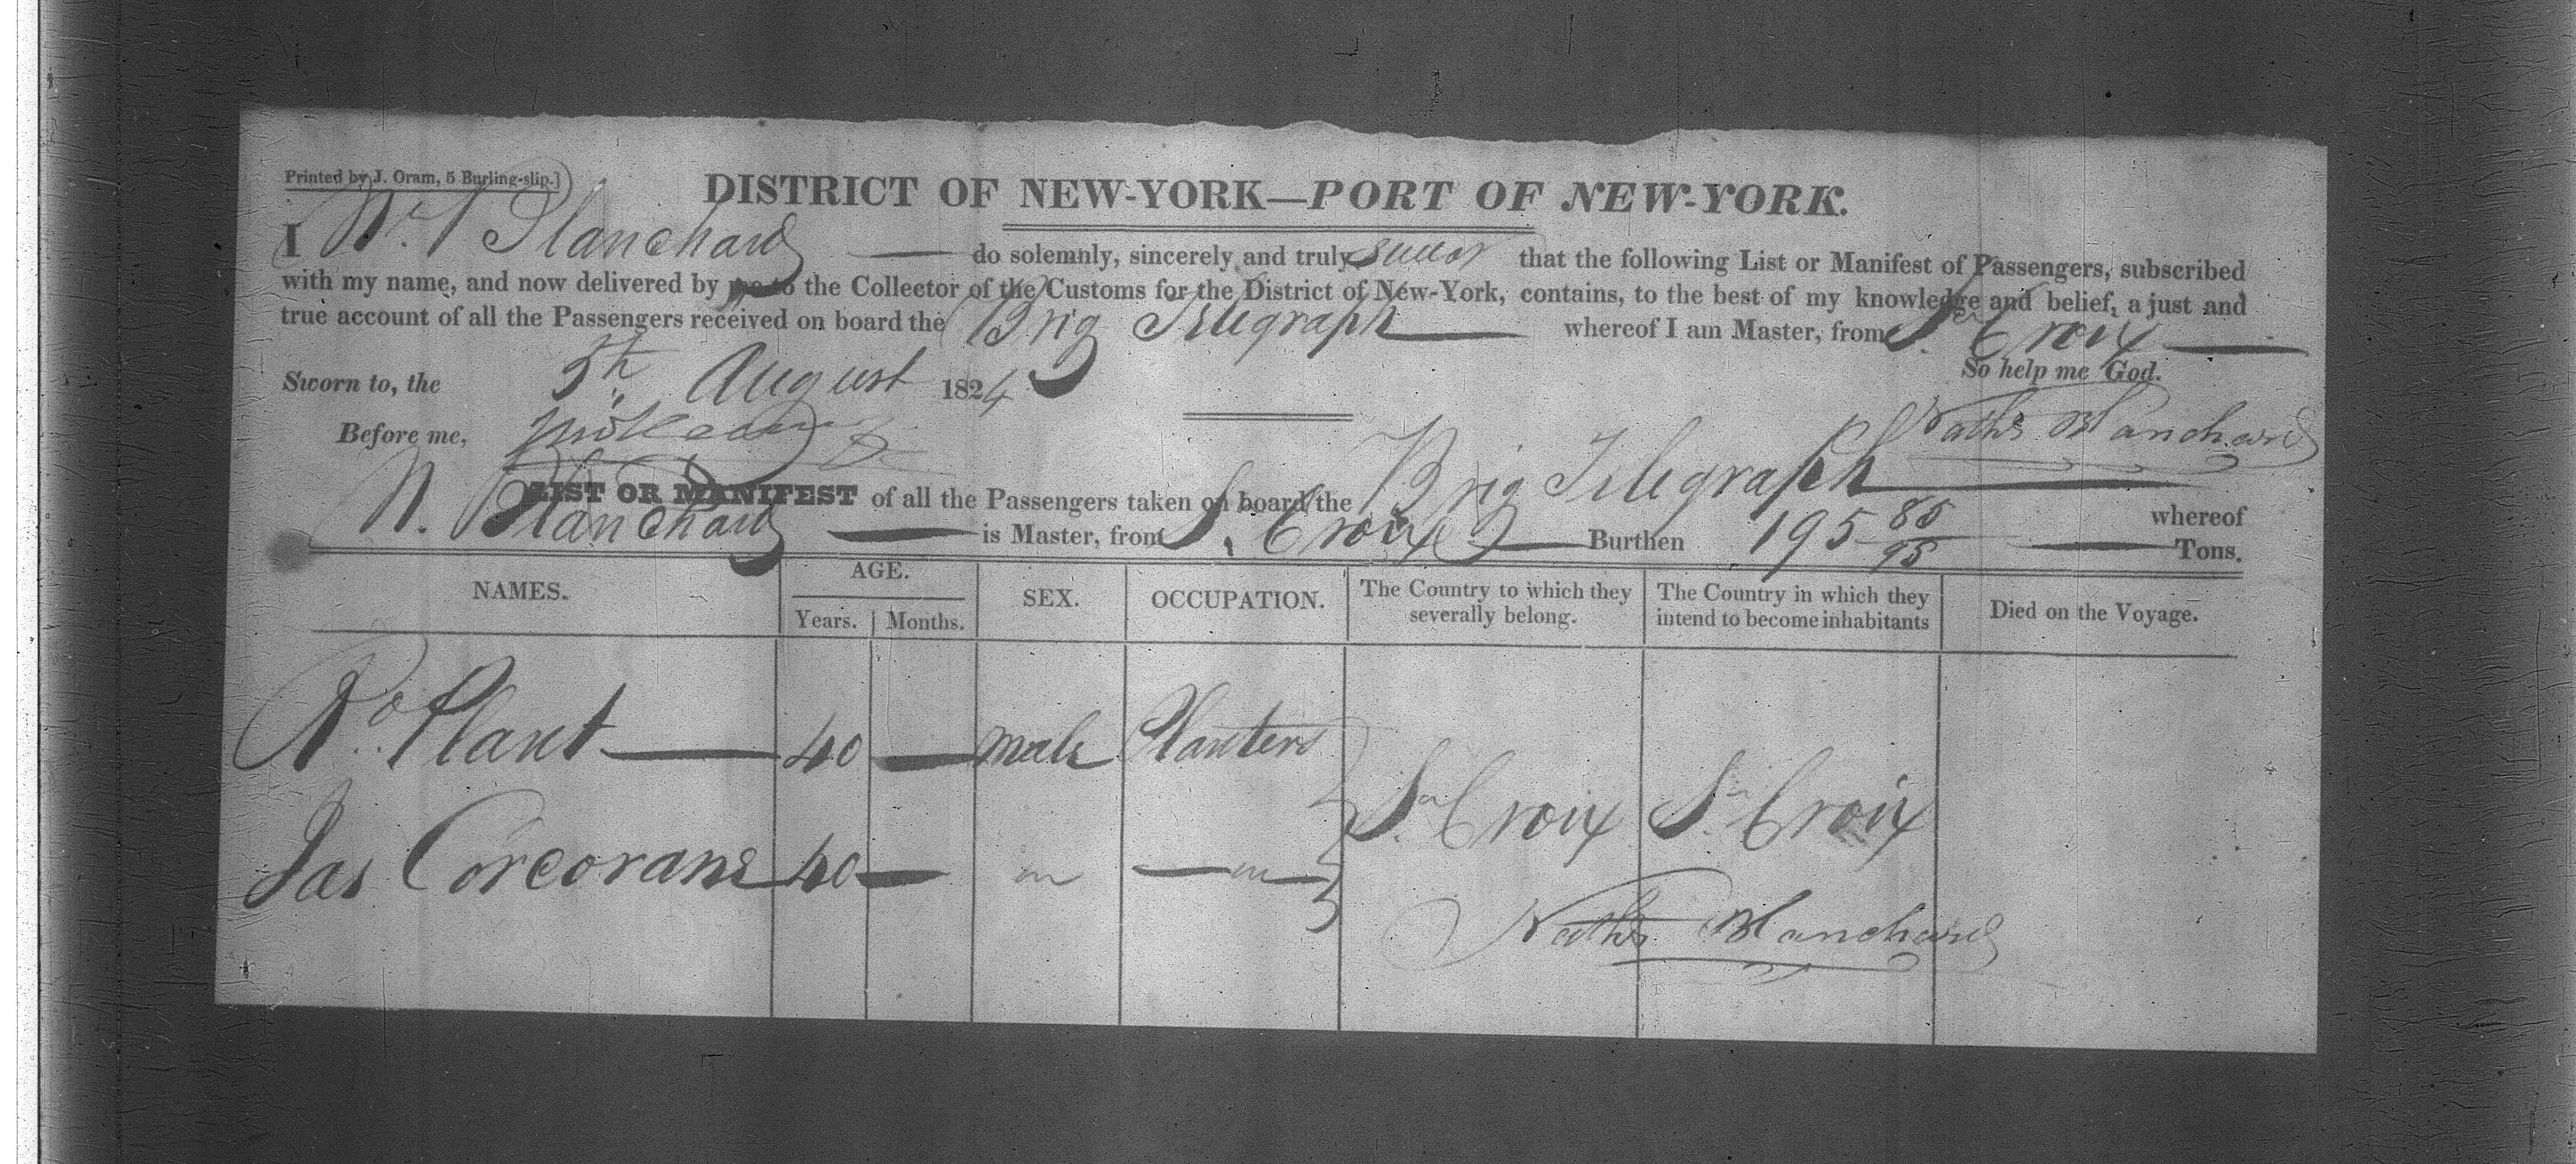 Printed by J. Oram, 5 Burling-slip.]
DISTRICT OF NEW-YORK—PORT OF NEW-YORK.
I N. Blanchard — do solemnly, sincerely and truly swear that the following List or Manifest of Passengers, subscribed
with my name, and now delivered by me to the Collector of the Customs for the District of New-York, contains, to the best of my knowledge and belief, a just and
true account of all the Passengers received on board the Brig Telegraph — whereof I am Master, from St. Croix —
So help me God.
Sworn to, the 5th August 1824
Before me,
Nathl Blanchard
LIST OR MANIFEST of all the Passengers taken on board the Brig Telegraph — whereof
N. Blanchard — is Master, from St. Croix — Burthen 195 85/95 — Tons.
NAMES. AGE. SEX. OCCUPATION. The Country to which they severally belong. The Country in which they intend to become inhabitants Died on the Voyage.
Years. Months.
Plant — 40 — male Planters
St. Croix St. Croix
Jas Corcorans 40 — " — " —
Nathl Blanchard